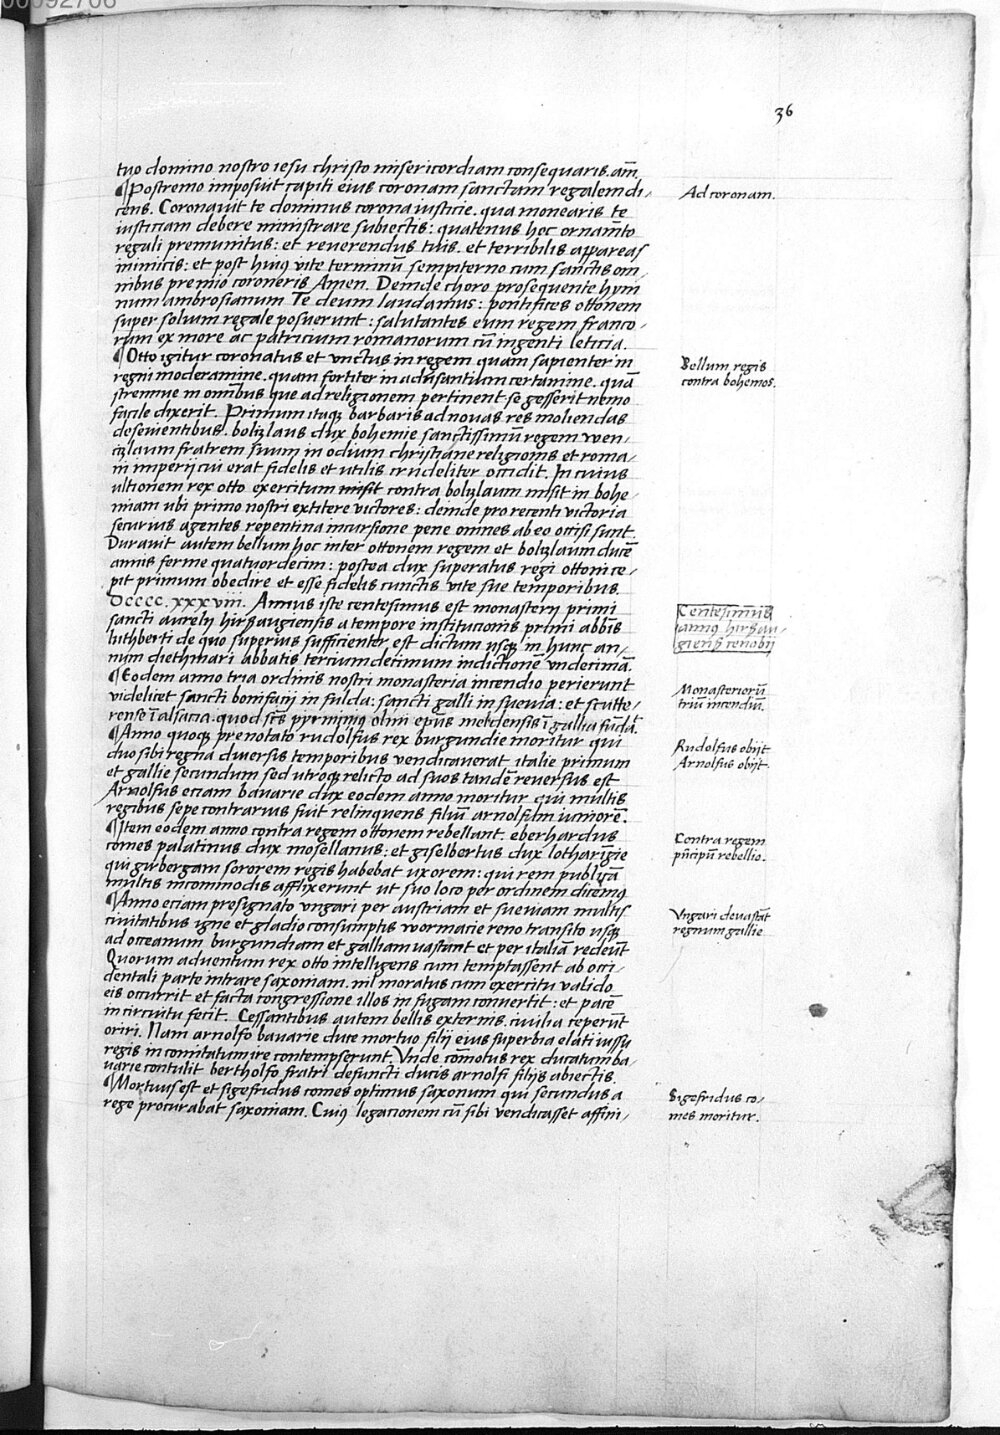 00092706
36
tuo domino nostro iesu christo misericordiam consequaris. am̄.
¶Postremo imposuit capiti eius coronam sanctam regalem di-
Ad coronam.
cens. Coronauit te dominus corona iusticie. qua monearis te
iusticiam debere ministrare subiectis: quatenus hoc ornam̄to
regali premunitus: et reuerendus tuis. et terribilis appareas
inimicis: et post huiꝰ vite terminū sempiterno cum sanctis om-
nibus premio coroneris Amen. Deinde choro prosequente hym
num ambrosianum Te deum laudamus: pontifices ottonem
super solium regale posuerunt: salutantes eum regem franco-
rum ex more ac patricium romanorum cū ingenti leticia.
¶Otto igitur coronatus et vnctus in regem. quam sapienter in
Bellum regis
regni moderamine. quam fortiter in aduersantium certamine. quā
contra bohemos.
strennue in omnibus que ad religionem pertinent se gesserit nemo
facile dixerit. Primum itaqꝫ barbaris ad nouas res moliendas
deseuientibus. bolizlaus dux bohemie sanctissimū regem wen-
cizlaum fratrem suum in odium christiane religionis et roma-
ni imperij cui erat fidelis et utilis crudeliter occidit. In cuius
ultionem rex otto exercitum misit contra bolizlaum misit in bohe-
miam ubi primo nostri extitere victores: deinde pro recenti victoria
securius agentes repentina incursione pene omnes ab eo occisi sunt.
Durauit autem bellum hoc inter ottonem regem et bolizlaum ducē
annis ferme quatuordecim: postea dux superatus regi ottoni ce-
pit primum obedire et esse fidelis cunctis vite sue temporibus.
Dcccc.xxxviii. Annus iste centesimus est monasterij primi
Centesimus
annꝰ hirsau-
giensis cenobij
sancti aurelij hirsaugiensis a tempore institucionis primi abbīs
luthberti de quo superius sufficienter est dictum usqꝫ in hunc an-
num diethmari abbatis terciumdecimum indictionē vndecimā.
¶Eodem anno tria ordinis nostri monasteria incendio perierunt
Monasteriorū
videlicet sancti bonifacij in fulda: sancti galli in sueuia: et scutte-
trium incendiū.
rense ī alsacia. quod scs pyrminius olim epūs meldensis ī gallia fūdā.
¶Anno quoqꝫ prenotato rudolfus rex burgundie moritur qui
Rudolfus obijt
duo sibi regna diuersis temporibus vendicauerat italie primum
Arnolfus obijt.
et gallie secundum sed utroqꝫ relicto ad suos tandē reuersus est
Arnolfus eciam bauarie dux eodem anno moritur qui multis
regibus sepe contrarius fuit relinquens filiū arnolfum iuniorē.
¶Item eodem anno contra regem ottonem rebellant. eberhardus
Contra regem
comes palatinus dux mosellanus: et giselbertus dux lotharīgie
pñcipū rebellio.
qui girbergam sororem regis habebat uxorem: qui rem publicā
multis incommodis afflixerunt ut suo loco per ordinem dicemꝰ
¶Anno eciam presignato vngari per austriam et sueuiam multis
Vngari deuastāt
ciuitatibus igne et gladio consumptis wormacie reno transito usqꝫ
regnum gallie
ad occeanum burgundiam et galliam uastant et per italiā redeūt
Quorum aduentum rex otto intelligens cum temptassent ab occi-
dentali parte intrare saxoniam. nil moratus cum exercitu valido
eis occurrit et facta congressione illos in fugam conuertit: et pacē
in circuitu fecit. Cessantibus autem bellis externis. ciuilia ceperūt
oriri. Nam arnolfo bauarie duce mortuo filij eius superbia elati iussu
regis in comitatum ire contempserunt. Vnde cōmotus rex ducatum ba-
uarie contulit bertholfo fratri defuncti ducis arnolfi filijs abiectis.
¶Mortuus est et sigefridus comes optimus saxonum qui secundus a
Sigefridus co-
rege procurabat saxoniam. Cuiꝰ legacionem cū sibi vendicasset affini-
mes moritur.